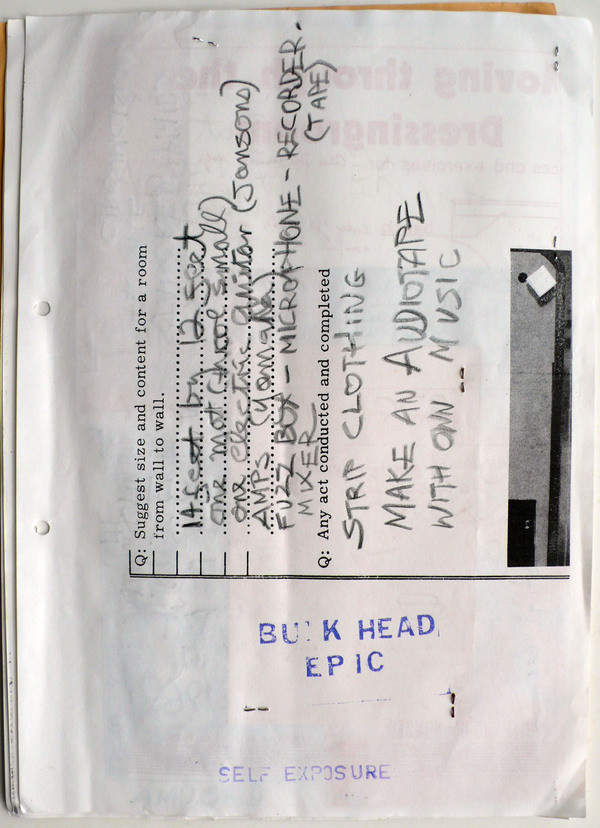 Q: Suggest size and content for a room
from wall to wall.
14 feet by 12 feet
one mat (hool small)
one electric guitar (Jansons)
AMPS (Yamaha)
FUZZ BOX - MICROPHONE - RECORDER -
(TAPE)
MIXER
Q: Any act conducted and completed
STRIP CLOTHING
MAKE AN AUDIOTAPE
WITH OWN MUSIC
BULK HEAD
EPIC
SELF EXPOSURE
Moving through the
Dressingroom